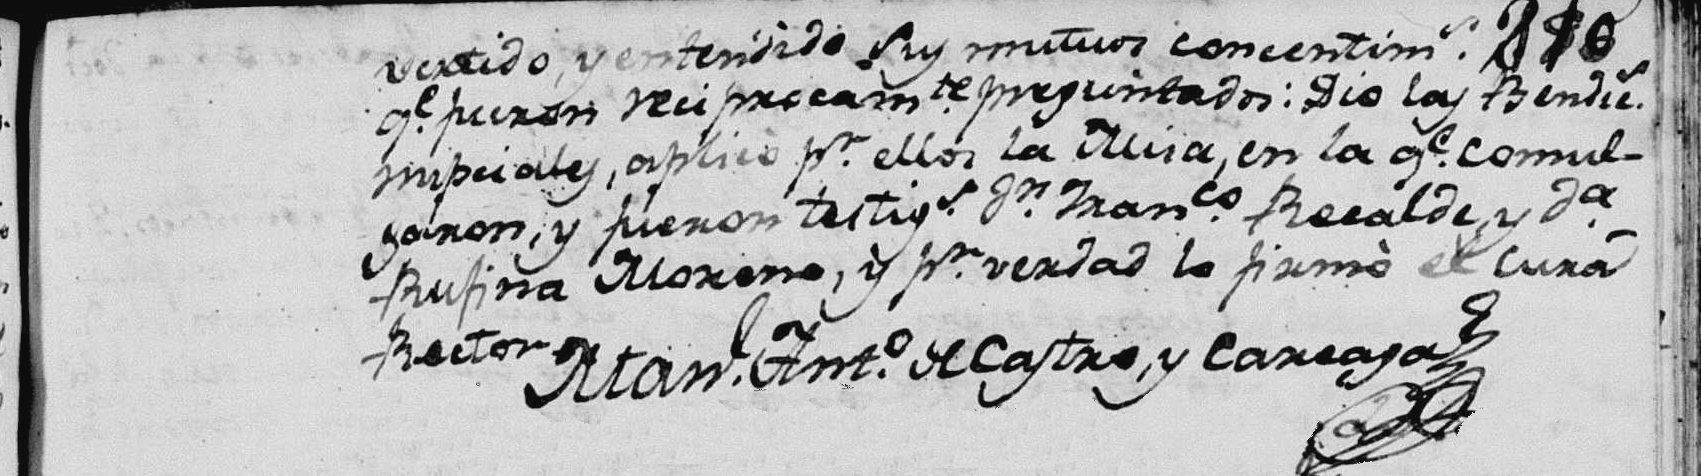 vertido, y entendido sus mutuos concentims. 210
qe. fueron reciprocamte. preguntados: Dio las Bendics.
nupciales, aplicò pr. ellos la Misa, en la qe. comul-
garon, y fueron testigs. Dn. Franco. Recalde, y Da.
Rufina Moreno, y pr. verdad lo firmò el Cura
Rector
Manl. Anto. de Castro, y Careaga